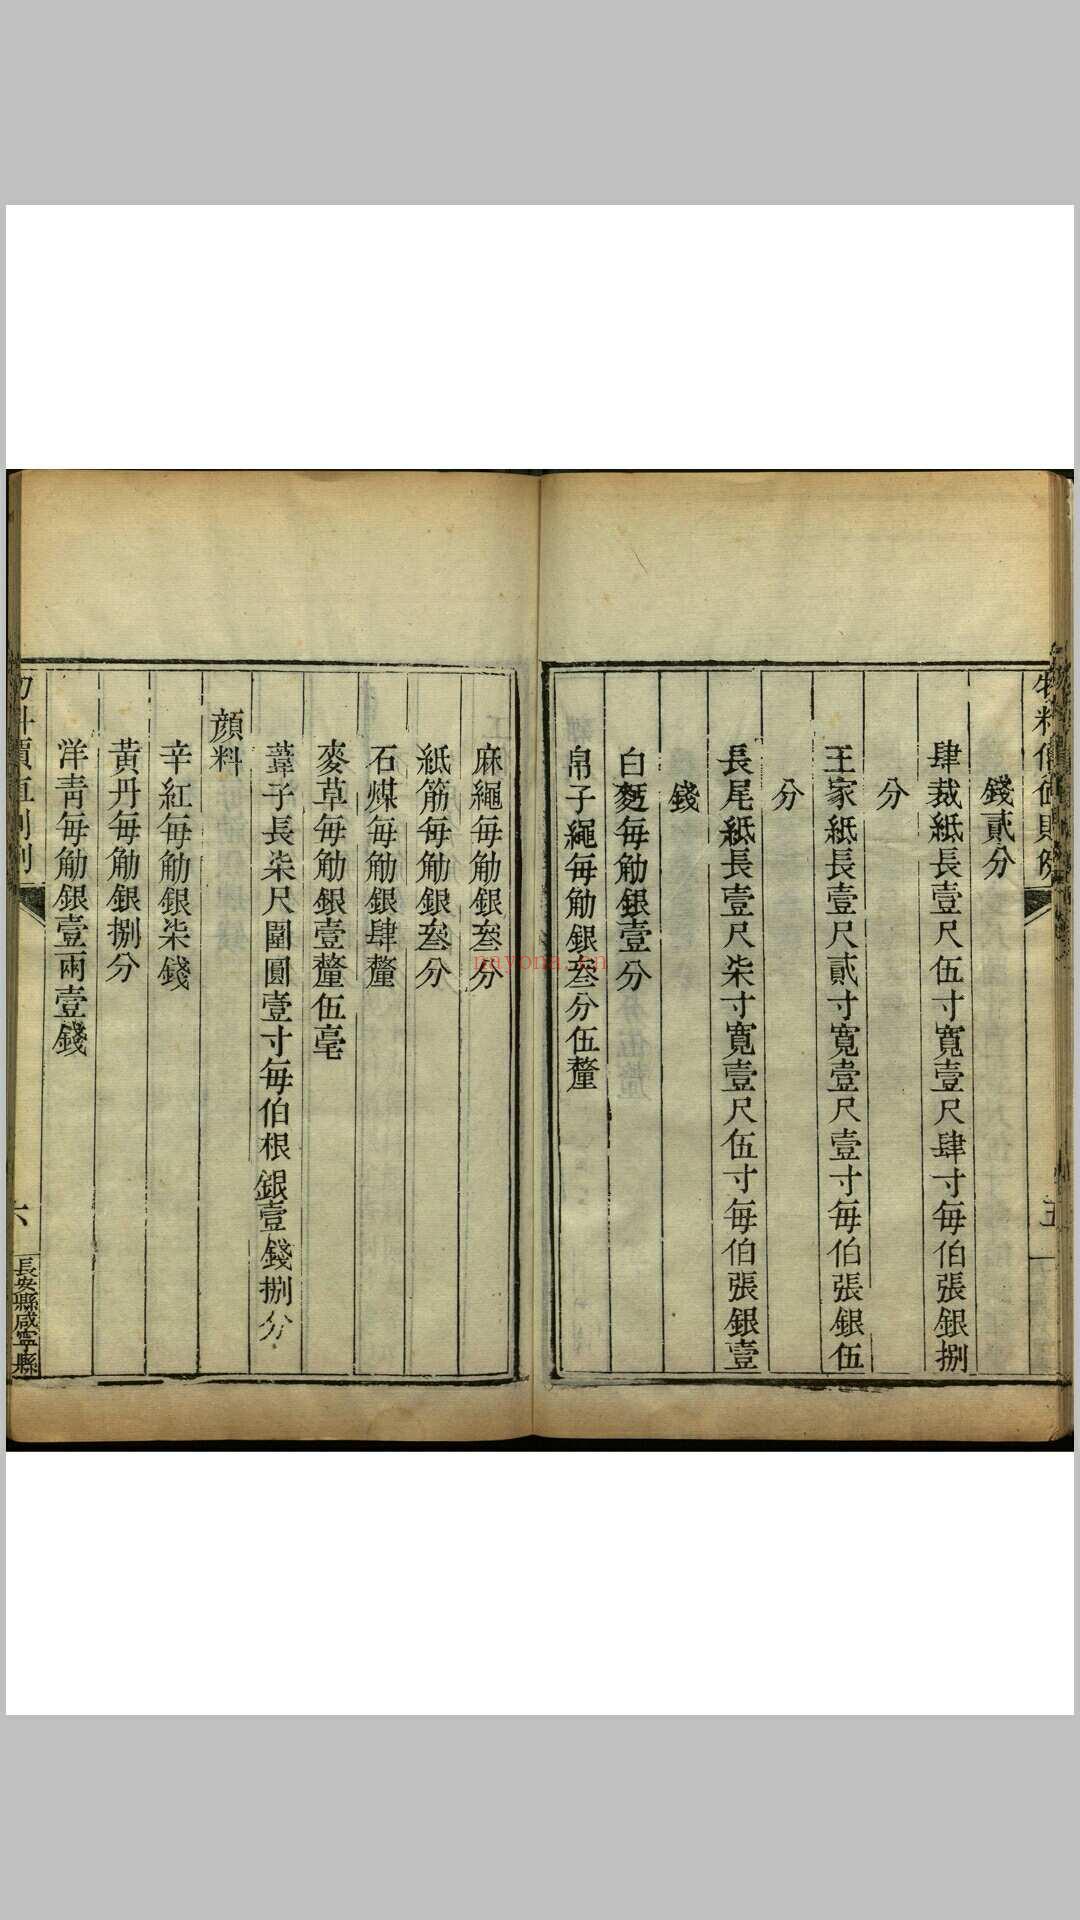 物料價値則例
五
錢貳分
肆裁紙長壹尺伍寸寬壹尺肆寸每伯張銀捌
分
王家紙長壹尺貳寸寬壹尺壹寸每伯張銀伍
分
長尾紙長壹尺柒寸寬壹尺伍寸每伯張銀壹
錢
白麪每觔銀壹分
帛子繩每觔銀叁分伍釐
麻繩每觔銀叁分
紙筋每觔銀叁分
石煤每觔銀肆釐
麥草每觔銀壹釐伍毫
葦子長柒尺圍圓壹寸每伯根銀壹錢捌分
顏料
辛紅每觔銀柒錢
黃丹每觔銀捌分
洋靑每觔銀壹兩壹錢
物料價直則例
六
長安縣咸寧縣
nayona.cn